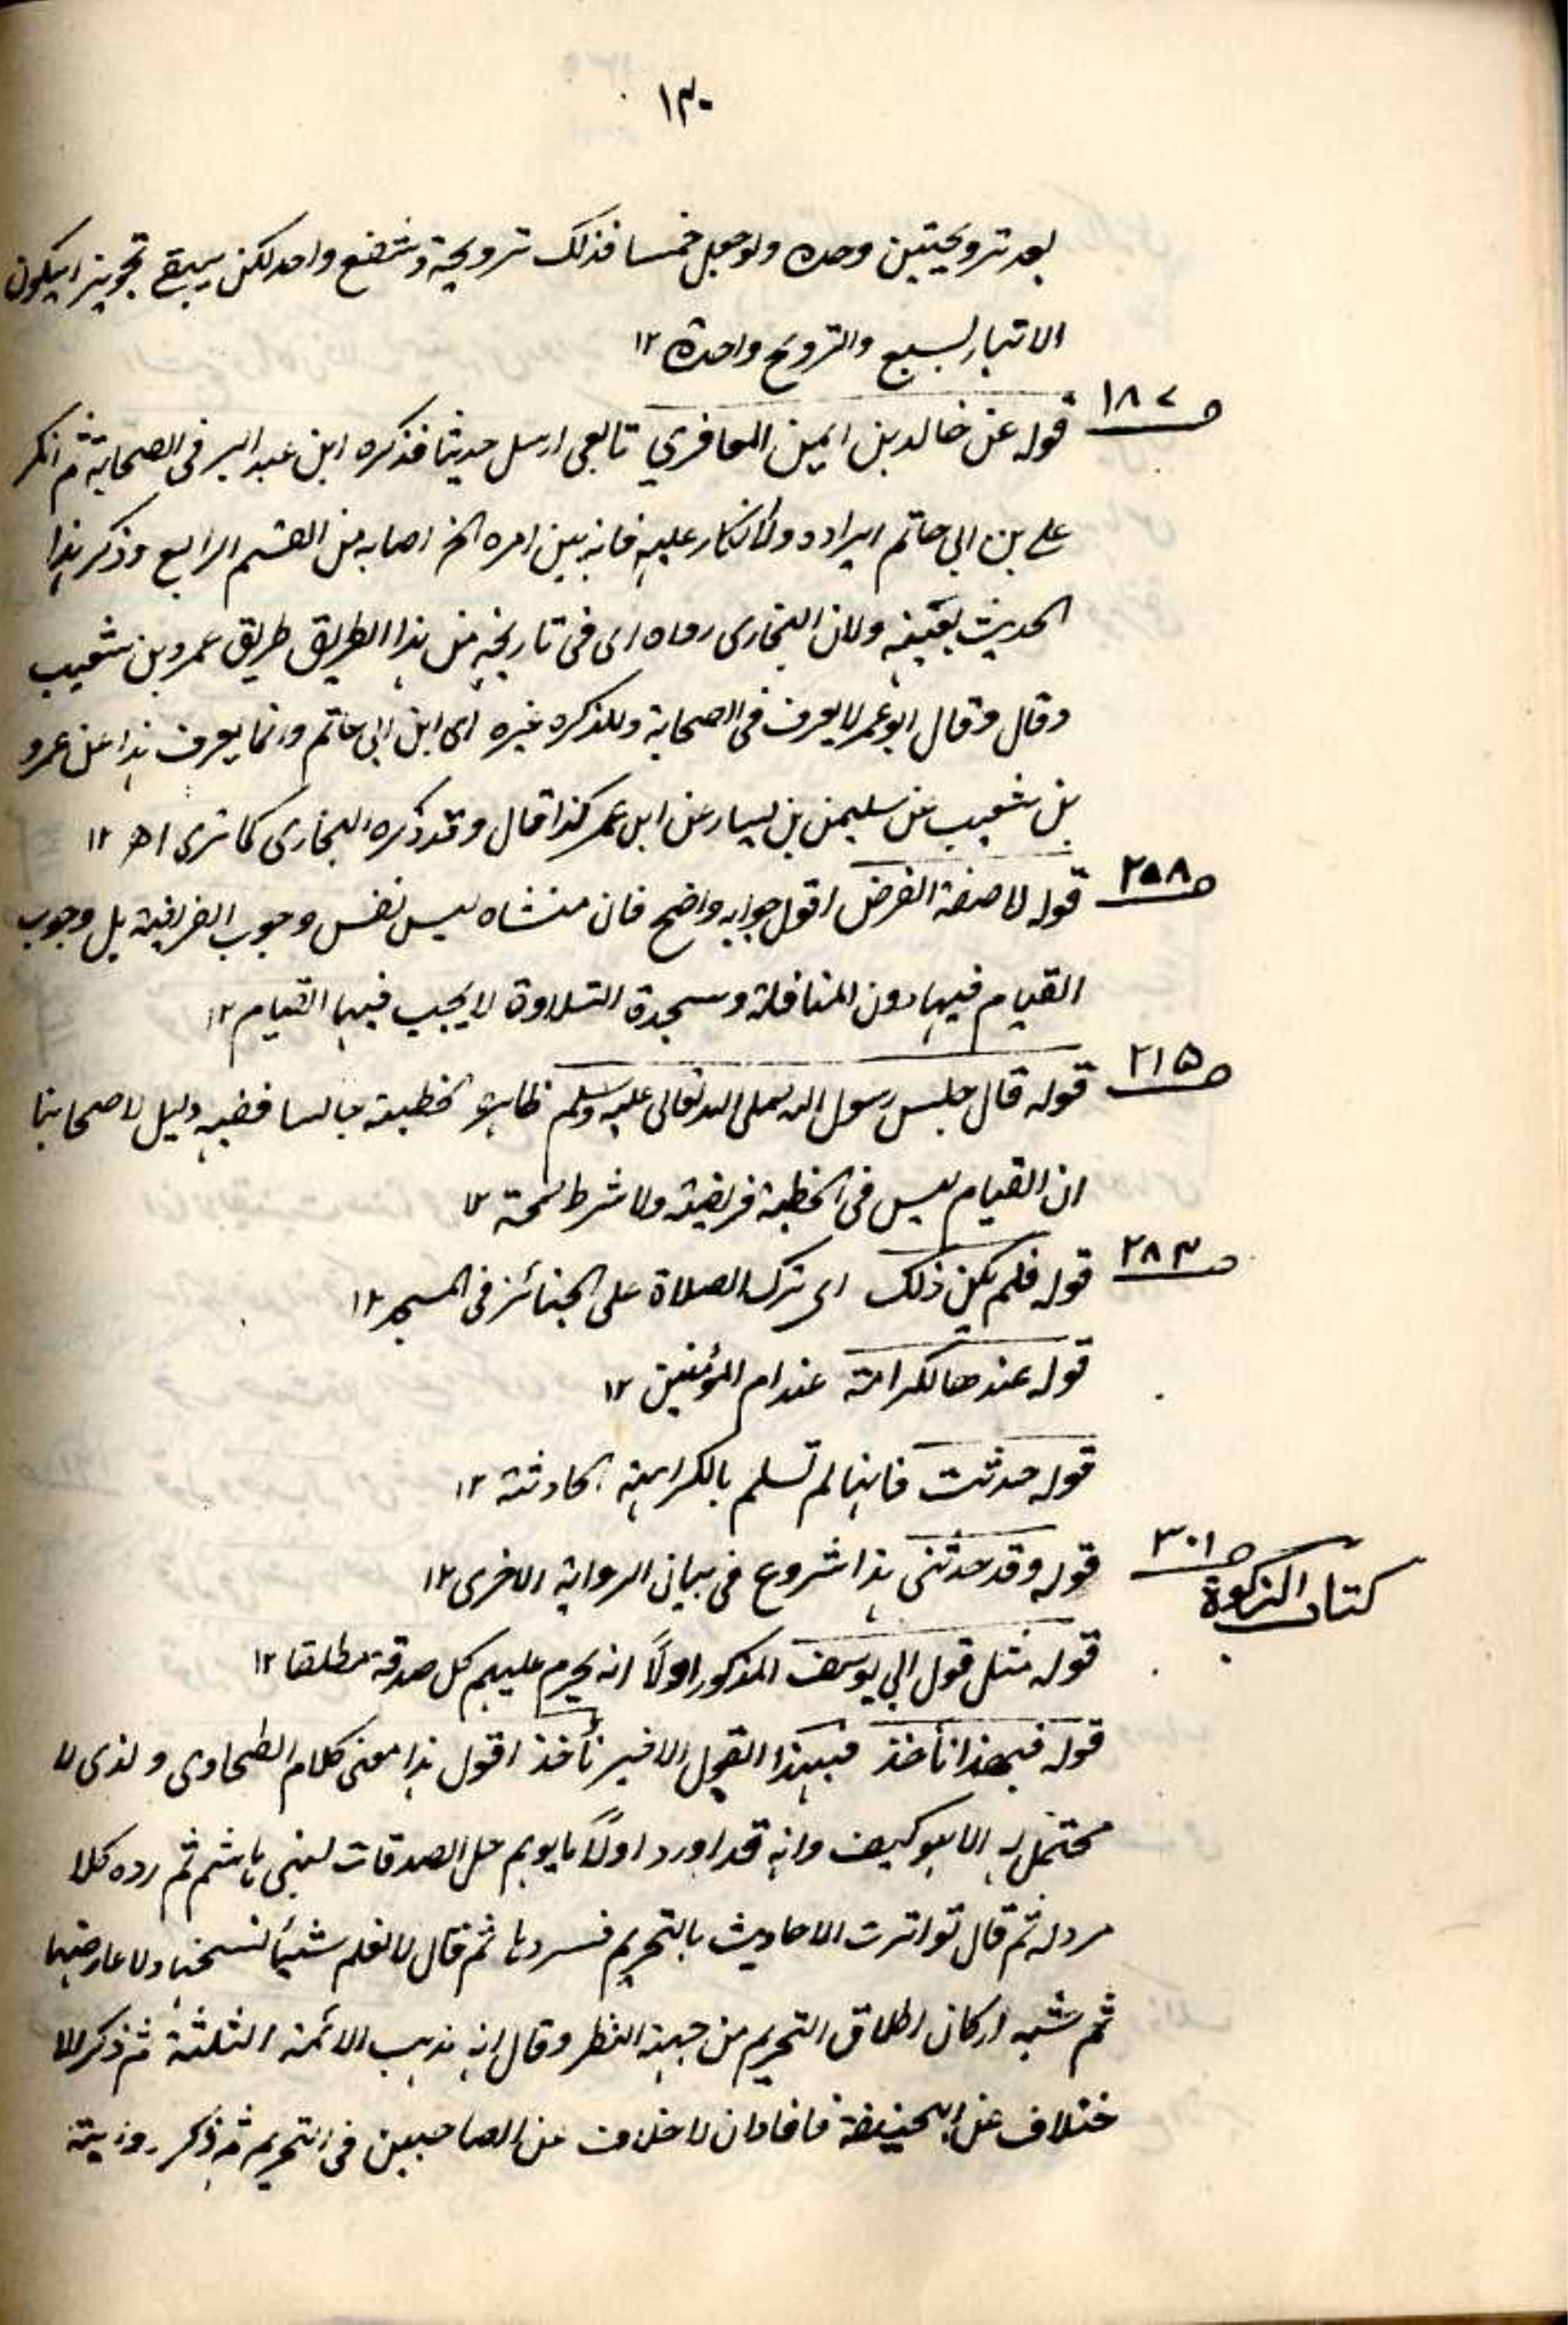 ١٣٠
بعد ترويحتين وحده ولو جعل خمسا فذلك ترويحة وشفع واحد لكن يبقى تجويز ان يكون
الاتيار بسبع والترويح واحدة ١٢
صـ ١٨٧
قوله عن خالد بن ايمن المعافري تابعي ارسل حديثا فذكره ابن عبد البر فى الصحابة ثم انكر
على بن ابى حاتم ايراده ولا انكار عليه فانه بين امره الخ اصابه من القسم الرابع وذكر هذا
الحديث بعينه ولان البخارى رواه اى فى تاريخه من هذا الطريق طريق عمرو بن شعيب
وقال وقال ابو عمر لا يعرف فى الصحابة ولا ذكره غيره اى ابن ابى حاتم وانما يعرف هذا عن عمرو
بن شعيب عن سليمن بن يسار عن ابن عمر كذا قال وقد ذكره البخارى كما ترى اهـ ١٢
صـ ٢٥٨
قوله لا صفة الفرض اقول جوابه واضح فان منشاه ليس نفس وجوب الفريضة بل وجوب
القيام فيها دون النافلة وسجدة التلاوة لا يجب فيها القيام ١٢
صـ ٢١٥
قوله قال جلس رسول الله صلى الله تعالى عليه وسلم ظاهره الخطبة جالسا ففيه دليل لاصحابنا
ان القيام ليس فى الخطبة فريضة ولا شرط لصحة ١٢
صـ ٢٨٣
قوله فلم يكن ذلك اى ترك الصلاة على الجنائز فى المسجد ١٢
قوله عندها لكرامة عند ام المؤمنين ١٢
قوله حدثت فانها لم تسلم بالكراهة الحادثة ١٢
صـ ٣٠١
كتاب الزكوة
قوله وقد حدثنى هذا شروع فى بيان الرواية الاخرى ١٢
قوله مثل قول ابى يوسف المذكور اولاً انه يحرم عليهم كل صدقة مطلقا ١٢
قوله فبهذا نأخذ فبهذا القول الاخير نأخذ اقول هذا معنى كلام الطحاوى ولذى لا
محتمل له الا هو كيف وانه قد اورد اولاً ما يوهم حل الصدقات لبنى هاشم ثم رده كلا
مرد له ثم قال تواترت الاحاديث بالتحريم فسردها ثم قال لا نعلم شيئاً نسخها ولا عارضها
ثم شيد اركان اطلاق التحريم من جهة النظر وقال انه مذهب الائمة الثلثة ثم ذكر الا
ختلاف عن ابى حنيفة فافاد ان لا خلاف عن الصاحبين فى التحريم ثم ذكر رواية